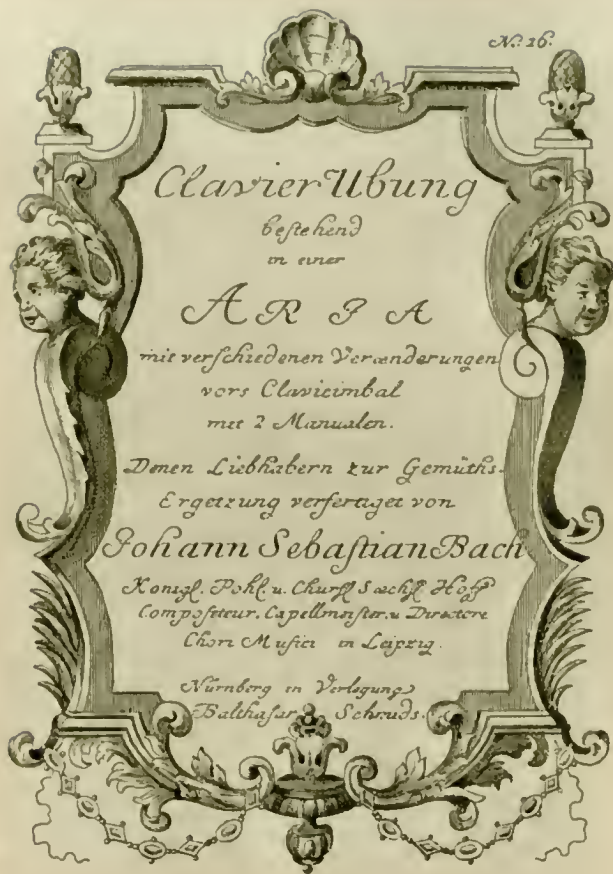 N.º 16.
Clavier Ubung
bestehend
in einer
ARIA
mit verschiedenen Verænderungen
vors Clavicimbal
mit 2 Manualen.
Denen Liebhabern zur Gemüths-
Ergetzung verfertiget von
Johann Sebastian Bach
Königl. Pohl. u. Churfl. Sæchs. Hoff-
Compositeur, Capellmeister, u. Directore
Chori Musici in Leipzig.
Nürnberg in Verlegung
Balthasar Schmids.